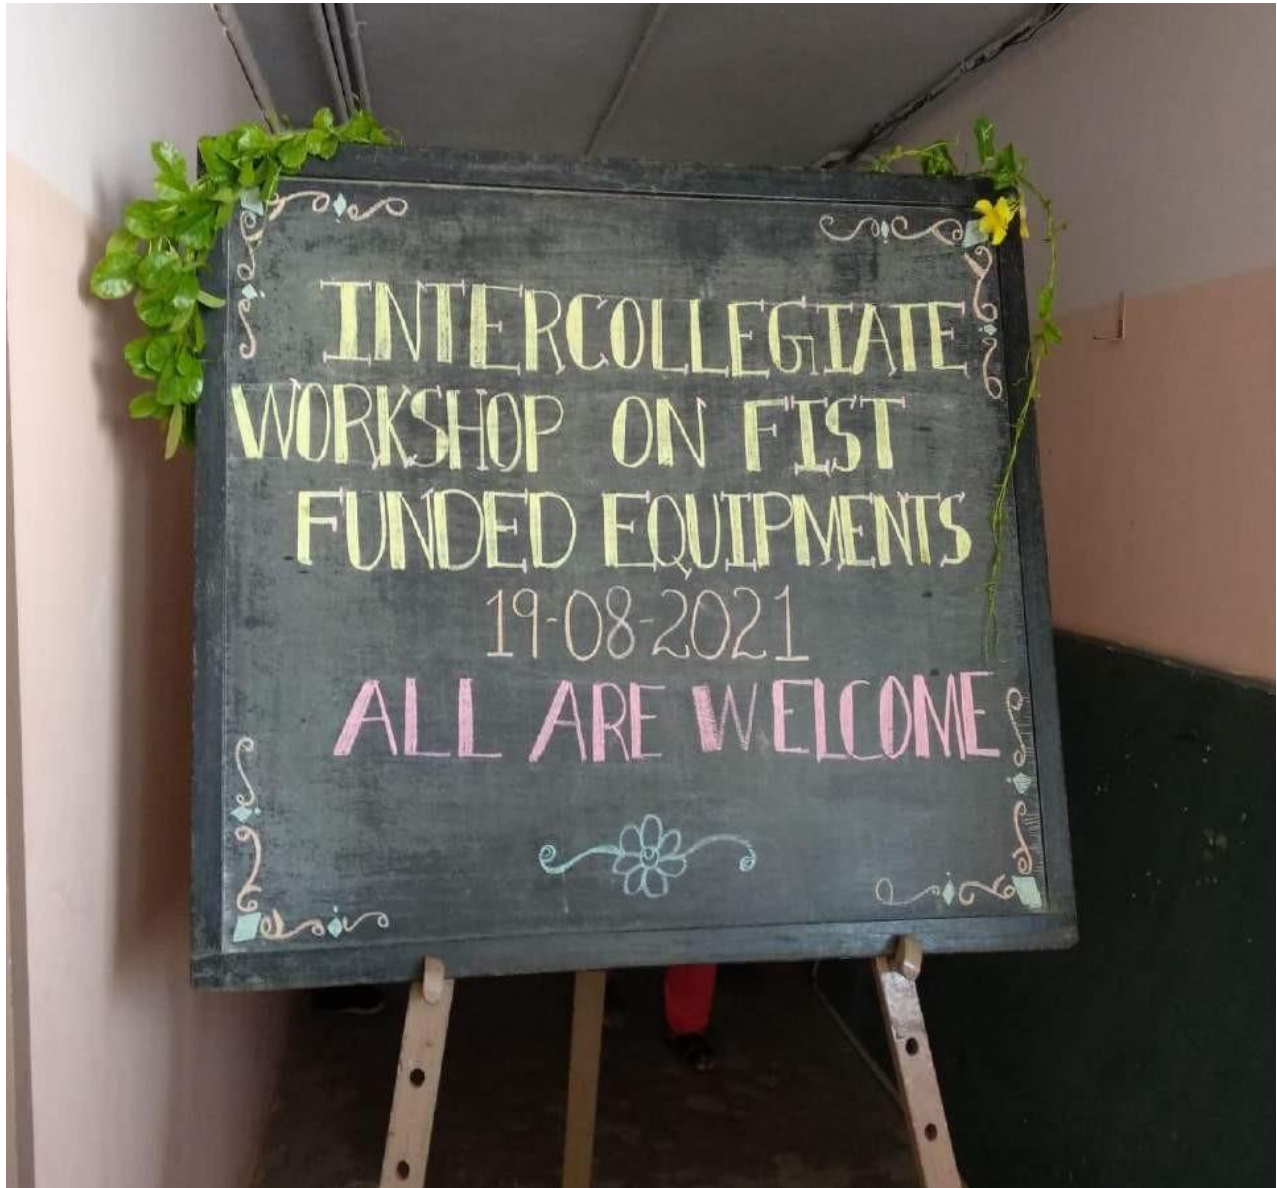 INTERCOLLEGIATE
WORKSHOP ON FIST
FUNDED EQUIPMENTS
19-08-2021
ALL ARE WELCOME